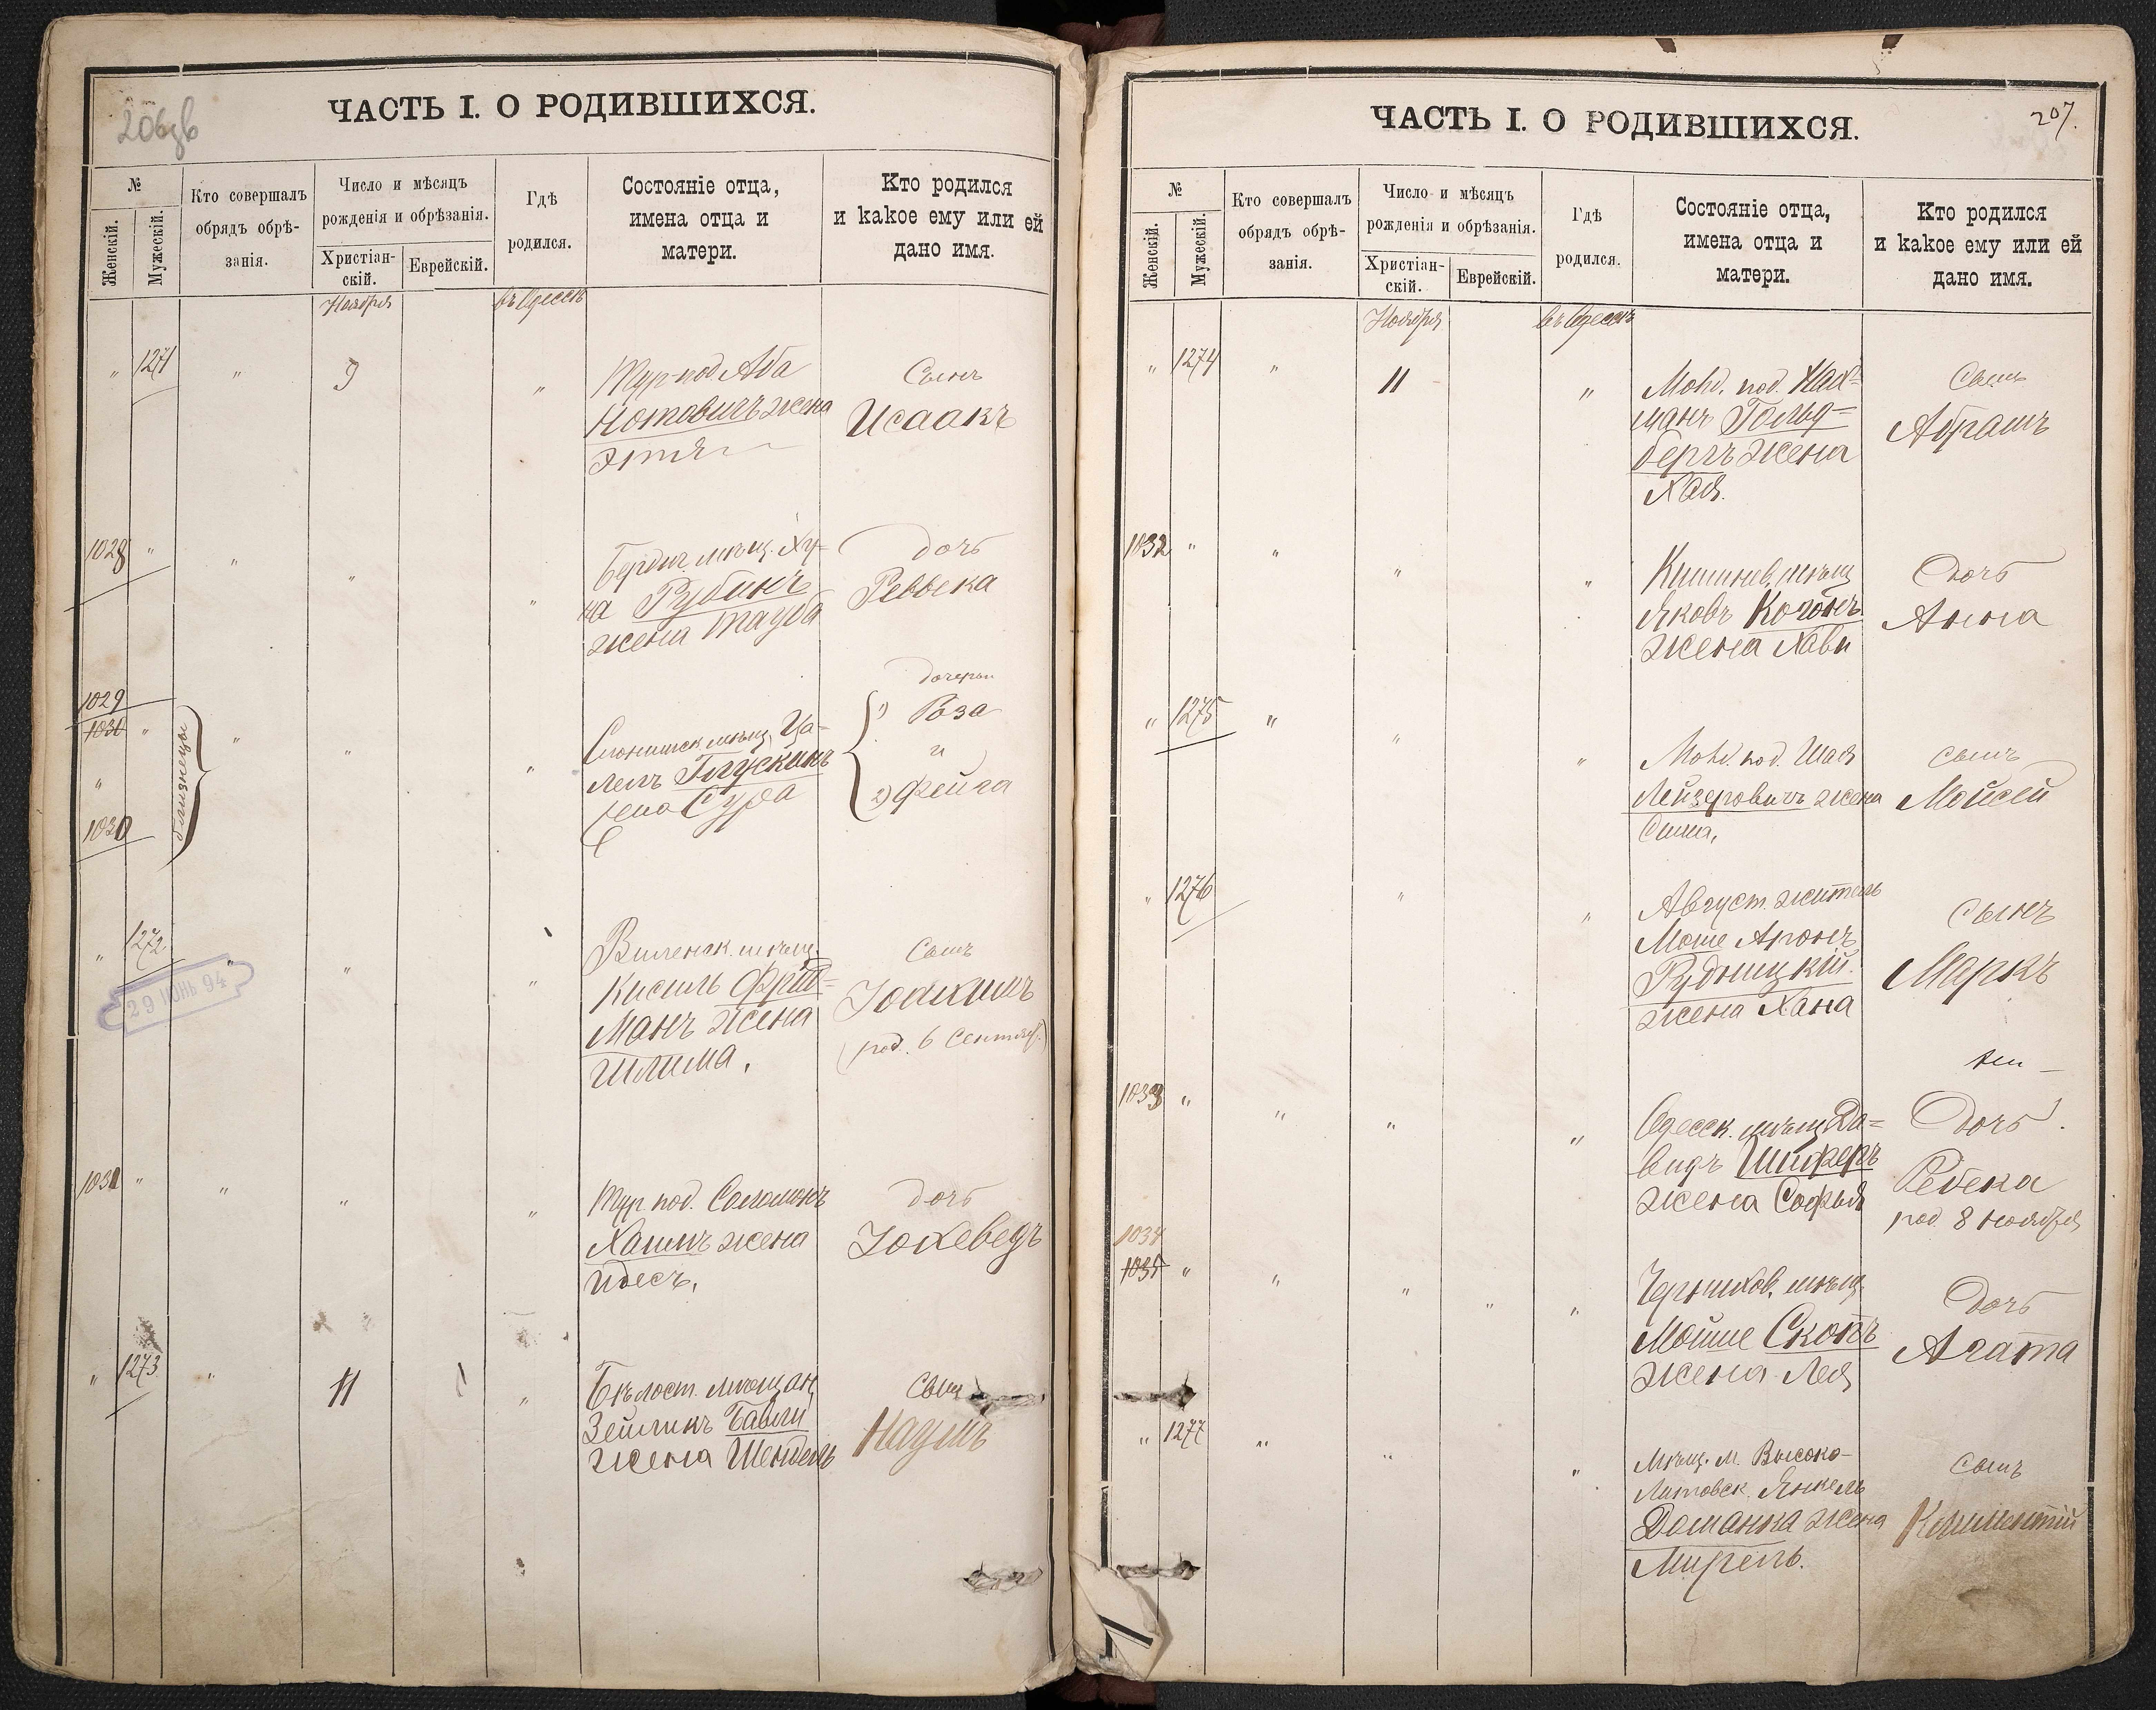 206зв
ЧАСТЬ I. О РОДИВШИХСЯ.
№
Женскій.
Мужескій.
Кто совершалъ
обрядъ обрѣ-
занія.
Число и мѣсяцъ
рожденія и обрѣзанія.
Христіан-
скій.
Еврейскій.
Гдѣ
родился.
Состояніе отца,
имена отца и
матери.
Кто родился
и какое ему или ей
дано имя.
Ноября
въ Одессѣ
" 1271 " 9 "
Тур-под Аба
Ноткевичъ жена
Этля
Сынъ
Исаакъ
1028 " " " "
Бердич. мѣщ. Ху-
на Рубинъ
жена Тауба
дочь
Ревекка
1029
1030 " " " "
"
1030
близнецы
Слонимск. мѣщ. Ца-
лелъ Глускинъ
жена Сура
дочери
1) Роза
и
2) Фейга
" 1272 " " "
29 ІЮНЬ 94
Виленск. мѣщ.
Кисиль Фрид-
манъ жена
Шлима.
Сынъ
Іоакимъ
(род. 6 Сентяб.)
1031 " " " "
Тур. под. Соломонъ
Хаимъ жена
Идесъ.
дочь
Іохеведъ
" 1273 " 11 "
Бѣлост. мѣщан.
Зейликъ Бавли
жена Шендель
Сынъ
Наумъ
207.
ЧАСТЬ I. О РОДИВШИХСЯ.
№
Женскій.
Мужескій.
Кто совершалъ
обрядъ обрѣ-
занія.
Число и мѣсяцъ
рожденія и обрѣзанія.
Христіан-
скій.
Еврейскій.
Гдѣ
родился.
Состояніе отца,
имена отца и
матери.
Кто родился
и какое ему или ей
дано имя.
Ноября
въ Одессѣ
" 1274 " 11 "
под. Нах-
манъ Гольд-
бергъ жена
Хая.
Сынъ
Абрамъ
1032 " " " "
Кишинев. мѣщ
Яковъ Когонъ
жена Хава
Дочь
Анна
" 1275 " " "
под. Шая
Лейзеровичъ жена
Сима,
сынъ
Мойсей
" 1276 " "
Август. житель
Моше Аронъ
Рудницкій.
жена Хана
Сынъ
Маркъ
1033 " " " "
Одесск. мѣщ Да-
видъ Шиферъ
жена Софья
Дочь
Ребека
род. 8 ноября
1034
1035 " " " " "
Черников. мѣщ.
Мойше Скопъ
жена Лея
Дочь
Агата
" 1277 " " "
Мѣщ. м. Высоко-
Литовск. Янкель
Доманка жена
Мирель.
Сынъ
Климентій